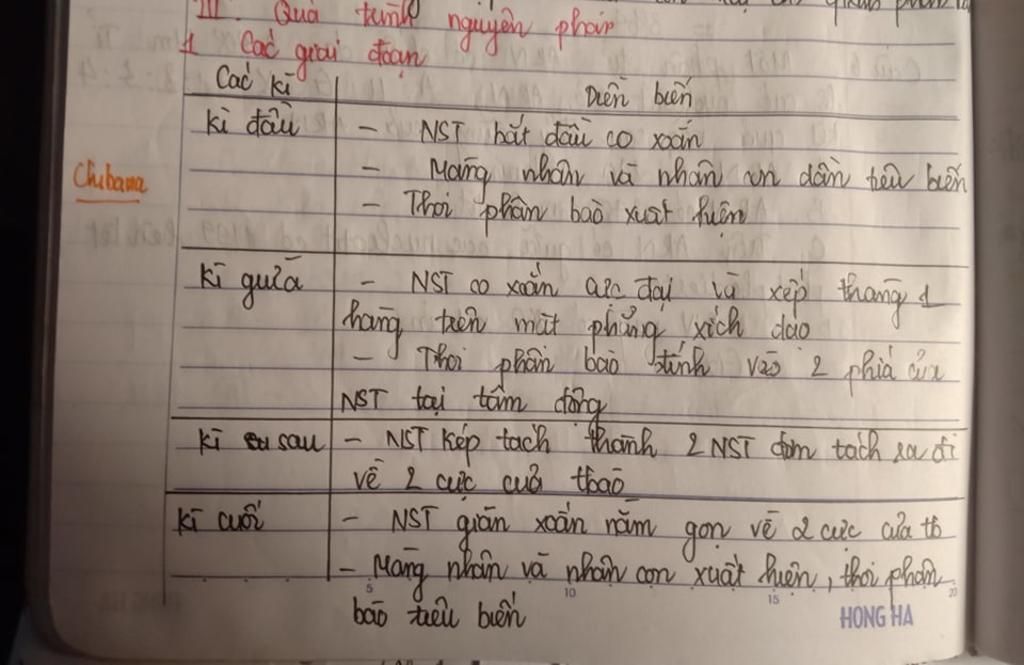 III. Quá trình nguyên phân
1 Các giai đoạn
Các kì
Diễn biến
Kì đầu
- NST bắt đầu co xoắn
- Màng nhân và nhân con dần tiêu biến
- Thoi phân bào xuất hiện
Chubama
Kì giữa
- NST co xoắn cực đại và xếp thẳng 1
hàng trên mặt phẳng xích đạo
- Thoi phân bào đính vào 2 phía của
NST tại tâm động
Kì sau
- NST kép tách thành 2 NST đơn tách ra đi
về 2 cực của tbào
Kì cuối
- NST giãn xoắn nằm gọn về 2 cực của tb
- Màng nhân và nhân con xuất hiện, thoi phân
bào tiêu biến
5 10 15 20
HONG HA